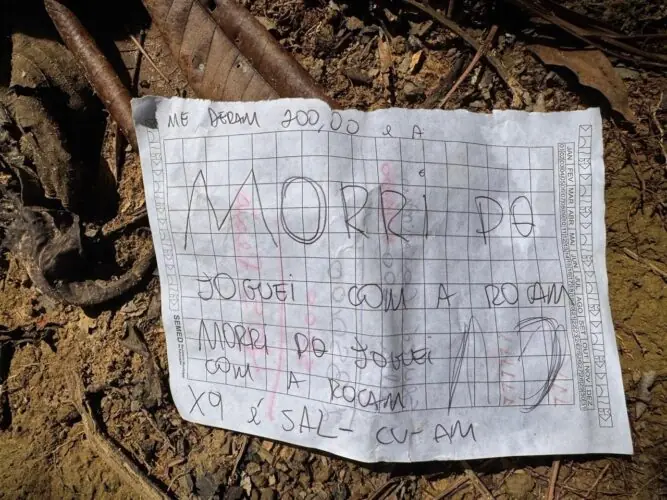 ME DERAM 200,00 E A
MORRI PQ
JOGUEI COM A ROCAM
MORRI PQ JOGUEI
COM A ROCAM
X9 É SAL - CU - AM
SEMED
JAN FEV MAR ABR MAI JUN JUL AGO SET OUT NOV DEZ